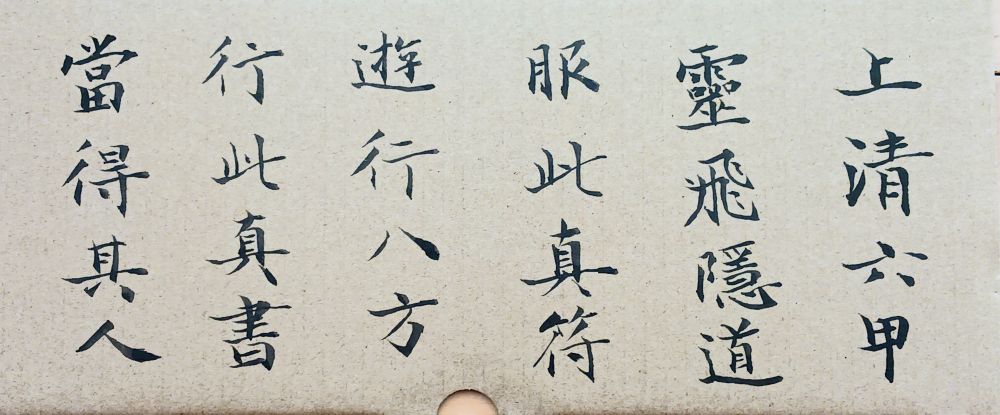 上清六甲
靈飛隱道
服此真符
遊行八方
行此真書
當得其人